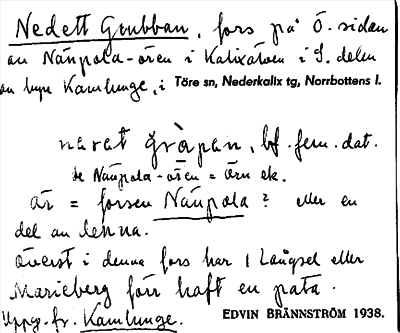 Nedett Grubban, fors på Ö. sidan
av Nänpola-ören i Kalixälven i S. delen
av byn Kamlunge, i Töre sn, Nederkalix tg, Norrbottens l.
gràpan, bf. fem. dat.
se Nänpola-ören = Örn ek.
är = forsen Nänpola? eller en
del av denna.
Överst i denna fors har 1 Långsel eller
Marieberg förr haft en pata.
Uppg. fr. Kamlunge. EDVIN BRÄNNSTRÖM 1938.